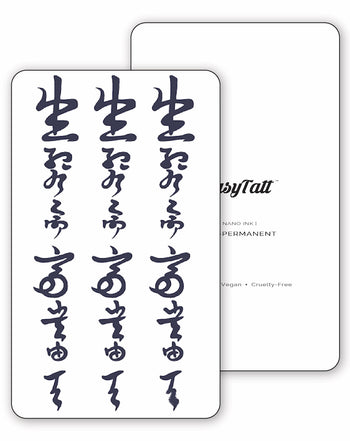 生死有命富贵由天
生死有命富贵由天
生死有命富贵由天
asyTatt™
NANO INK
-PERMANENT
Vegan • Cruelty-Free